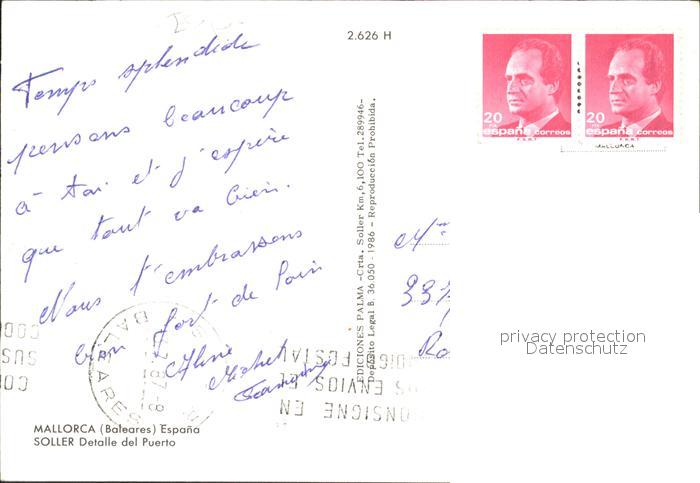 2.626 H
Temps splendide
pensons beaucoup
à toi et j'espère
que tout va bien.
Nous t'embrassons
bien fort de loin
Aline
Michel
EDICIONES PALMA -Crta. Soller Km,6,100 Tel.289946-
Depósito Legal B. 36.050 - 1986 - Reproducción Prohibida.
20
españa correos
F.N.M.T
20
españa correos
F.N.M.T
MALLORCA
Mme
privacy protection
Datenschutz
BALEARES
CONSIGNE EN
SUS ENVIOS EL
CODIGO POSTAL
MALLORCA (Baleares) España
SOLLER Detalle del Puerto